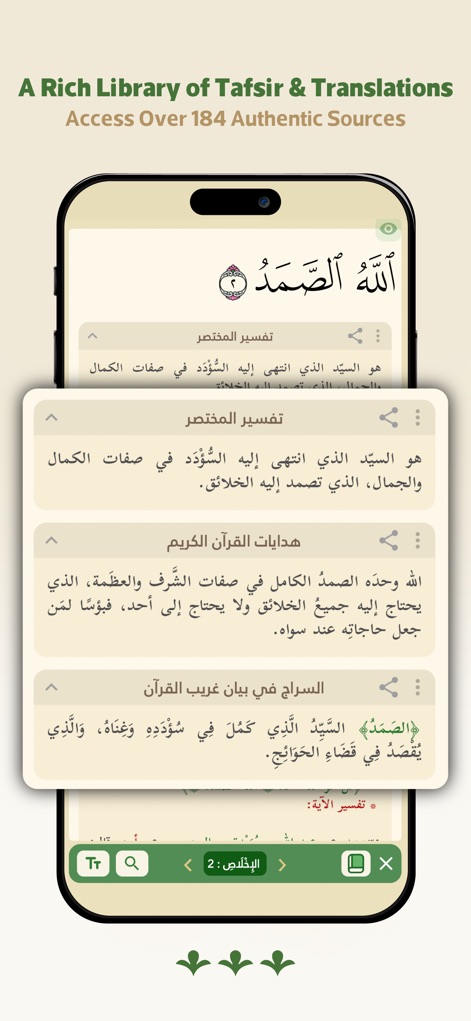 A Rich Library of Tafsir & Translations
Access Over 184 Authentic Sources
ٱللَّهُ ٱلصَّمَدُ ٢
تفسير المختصر
هو السيّد الذي انتهى إليه السُّؤْدَد في صفات الكمال
تفسير المختصر
هو السيّد الذي انتهى إليه السُّؤْدَد في صفات الكمال
والجمال، الذي تصمد إليه الخلائق.
هدايات القرآن الكريم
الله وحدَه الصمدُ الكامل في صفات الشَّرف والعظَمة، الذي
يحتاج إليه جميعُ الخلائق ولا يحتاج إلى أحد، فبؤسًا لمَن
جعل حاجاتِه عند سواه.
السراج في بيان غريب القرآن
﴿الصَمَدُ﴾ السَّيِّدُ الَّذِي كَمُلَ فِي سُؤْدَدِهِ وَغِنَاهُ، وَالَّذِي
يُقْصَدُ فِي قَضَاءِ الحَوَائِجِ.
* تفسير الآية:
الإِخْلَاصِ : 2
TT